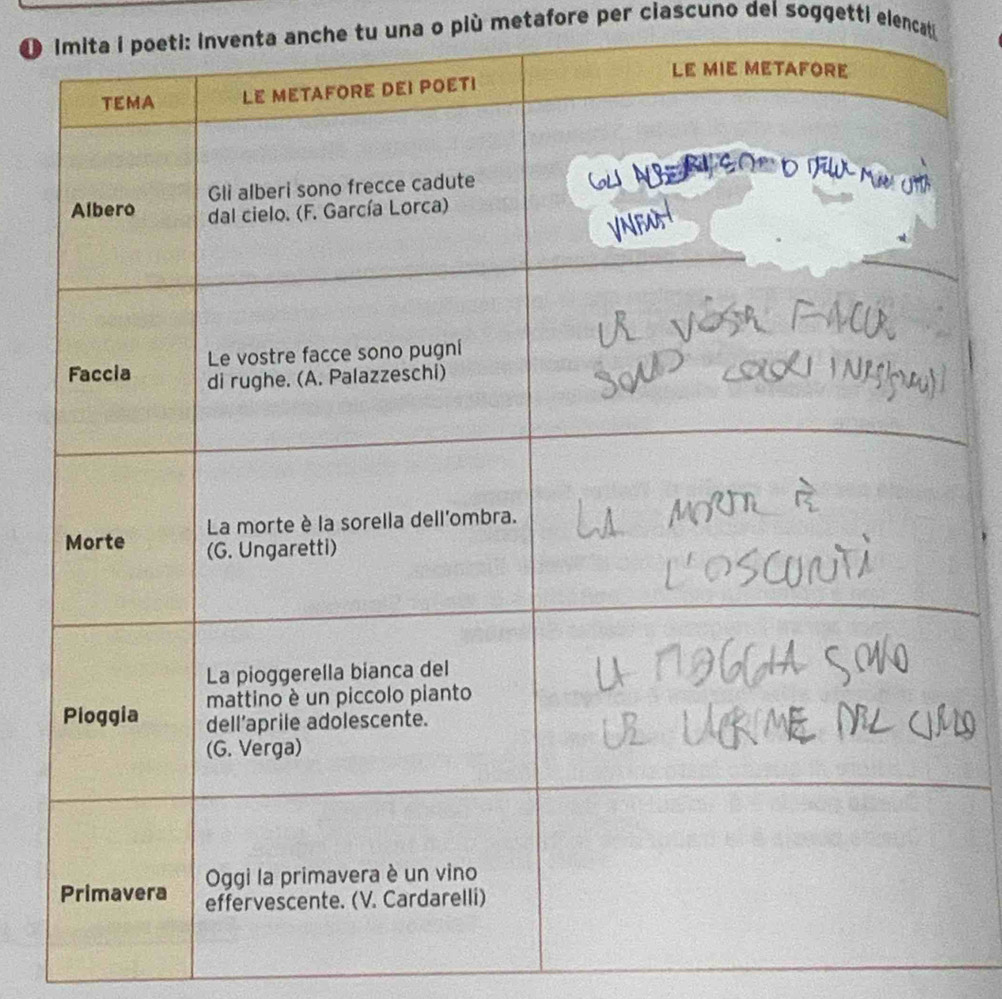 1 Imita i poeti: inventa anche tu una o più metafore per ciascuno dei soggetti elencati.
TEMA
LE METAFORE DEI POETI
LE MIE METAFORE
Albero
Gli alberi sono frecce cadute
dal cielo. (F. García Lorca)
GLI ALBERI SONO DELLE
Faccia
Le vostre facce sono pugni
di rughe. (A. Palazzeschi)
LE VOSTRE FACCE
SONO
Morte
La morte è la sorella dell'ombra.
(G. Ungaretti)
LA MORTE È
L'OSCURITÀ
Pioggia
La pioggerella bianca del
mattino è un piccolo pianto
dell'aprile adolescente.
(G. Verga)
LA PIOGGIA SONO
LE LACRIME DEL CIELO
Primavera
Oggi la primavera è un vino
effervescente. (V. Cardarelli)